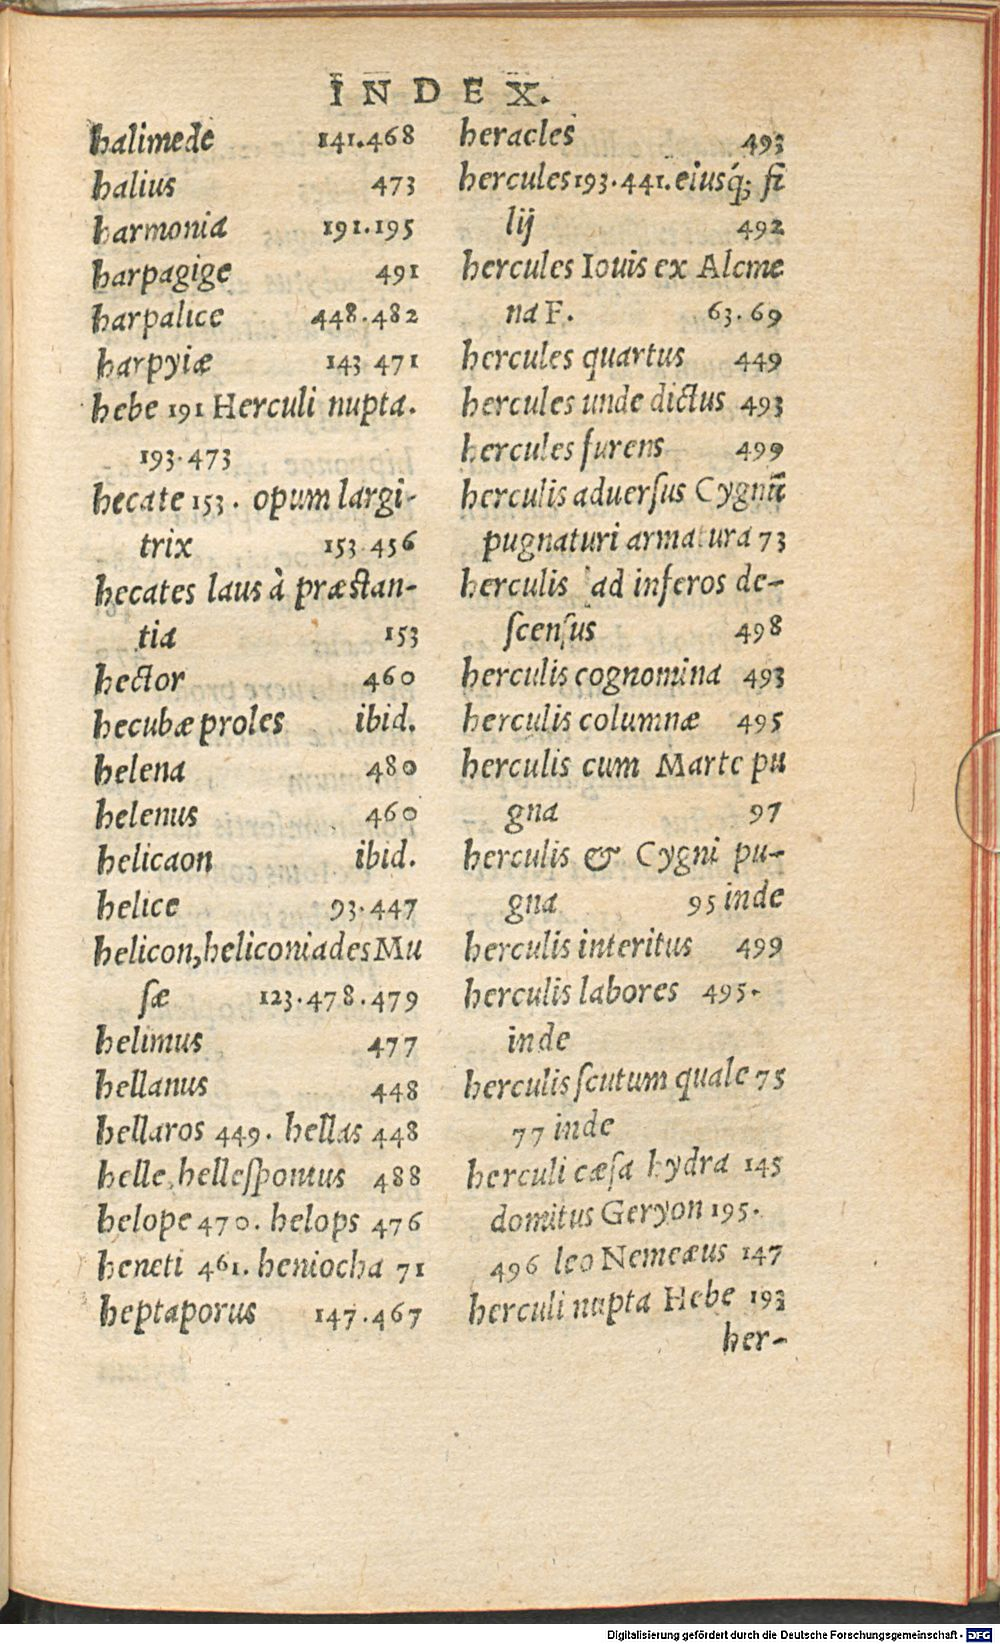 INDEX.
halimede 141.468
halius 473
harmonia 191.195
harpagige 491
harpalice 448.482
harpyiæ 143 471
hebe 191 Herculi nupta.
193.473
hecate 153. opum largi-
trix 153 456
hecates laus à præstan-
tia 153
hector 460
hecubæ proles ibid.
helena 480
helenus 460
helicaon ibid.
helice 93.447
helicon, heliconiades Mu
sæ 123.478.479
helimus 477
hellanus 448
hellaros 449. hellas 448
helle, hellespontus 488
helope 470. helops 476
heneti 461. heniocha 71
heptaporus 147.467
heracles 493
hercules 193.441. eiusq́; fi
lij 492
hercules Iouis ex Alcme
na F. 63.69
hercules quartus 449
hercules unde dictus 493
hercules furens 499
herculis aduersus Cygnũ
pugnaturi armatura 73
herculis ad inferos de-
scensus 498
herculis cognomina 493
herculis columnæ 495
herculis cum Marte pu
gna 97
herculis & Cygni pu-
gna 95 inde
herculis interitus 499
herculis labores 495.
inde
herculis scutum quale 75
77 inde
herculi cæsa hydra 145
domitus Geryon 195.
496 leo Nemeæus 147
herculi nupta Hebe 193
her-
Digitalisierung gefördert durch die Deutsche Forschungsgemeinschaft - DFG